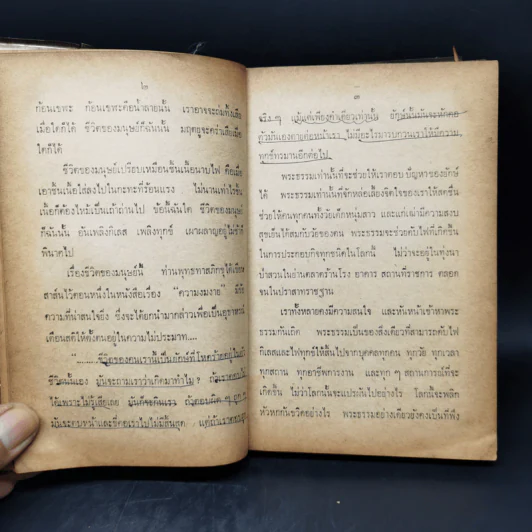 ๒
ก้อนเขฬะ ก้อนเขฬะคือน้ำลายนั้น เราอาจจะถ่มทิ้งเสีย
เมื่อใดก็ได้ ชีวิตของมนุษย์ก็ฉันนั้น มฤตยูจะคร่าเสียเมื่อ
ใดก็ได้
ชีวิตของมนุษย์เปรียบเหมือนชิ้นเนื้อนาบไฟ คือเมื่อ
เอาชิ้นเนื้อใส่ลงไปในกะทะที่ร้อนแรง ไม่นานเท่าไรชิ้น
เนื้อก็ต้องไหม้เป็นเถ้าถ่านไป ข้อนี้ฉันใด ชีวิตของมนุษย์
ก็ฉันนั้น อันเพลิงกิเลส เพลิงทุกข์ เผาผลาญอยู่ไม่ช้าก็
พินาศไป
เรื่องชีวิตของมนุษย์นี้ ท่านพุทธทาสภิกขุได้เขียน
สาส์นไว้ตอนหนึ่งในหนังสือเรื่อง "ความงมงาย" มี
ความที่น่าสนใจยิ่ง ซึ่งจะได้ยกนำมากล่าวเพื่อเป็น
เตือนสติให้ตั้งตนอยู่ในความไม่ประมาท....
"........ชีวิตของคนเรานี้เป็นยักษ์ที่โหดร้ายอยู่ในตัว
ชีวิตนั้นเอง มันจะถามเราว่าเกิดมาทำไม? ถ้าเราตอบไม่
ได้เพราะไม่รู้เสียเลย มันก็จะกินเรา ถ้าตอบผิด ๆ
มันจะคุมหน้าและขี่คอเราไปไม่มีสิ้นสุด แต่ถ้าเราตอบถูก
๓
จริง ๆ แม้แต่เพียงคำเดียวเท่านั้น ยักษ์นั้นมันจะหักคอ
ตัวมันเองตายต่อหน้าเรา ไม่มีอะไรมารบกวนเราให้มีความ
ทุกข์ทรมานอีกต่อไป
พระธรรมเท่านั้นที่จะช่วยให้เราตอบปัญหาของยักษ์
ได้ พระธรรมเท่านั้นที่จักหล่อเลี้ยงจิตใจของเราให้สดชื่น
ช่วยให้คนทุกคนทั้งวัยเด็กหนุ่มสาว และแก่เฒ่ามีความสงบ
สุขเย็นได้สมกับวัยของตน พระธรรมจะช่วยดับไฟที่เกิดขึ้น
ในการประกอบกิจทุกชนิดในโลกนี้ ไม่ว่าจะอยู่ในทุ่งนา
ป่าสวนในย่านตลาดร้านโรง อาคาร สถานที่ราชการ ตลอด
จนในปราสาทราชฐาน
เราทั้งหลายคงมีความสนใจ และหันหน้าเข้าหาพระ
ธรรมกันเถิด พระธรรมเป็นของสิ่งเดียวที่สามารถดับไฟ
กิเลสและไฟทุกข์ให้สิ้นไปจากบุคคลทุกคน ทุกวัย ทุกเวลา
ทุกสถาน ทุกอาชีพการงาน และทุก ๆ สถานการณ์ที่จะ
เกิดขึ้น ไม่ว่าโลกนั้นจะแปรผันไปอย่างไร โลกนี้จะพลิก
หัวหกก้นขวิดอย่างไร พระธรรมอย่างเดียวยังคงเป็นที่พึ่ง